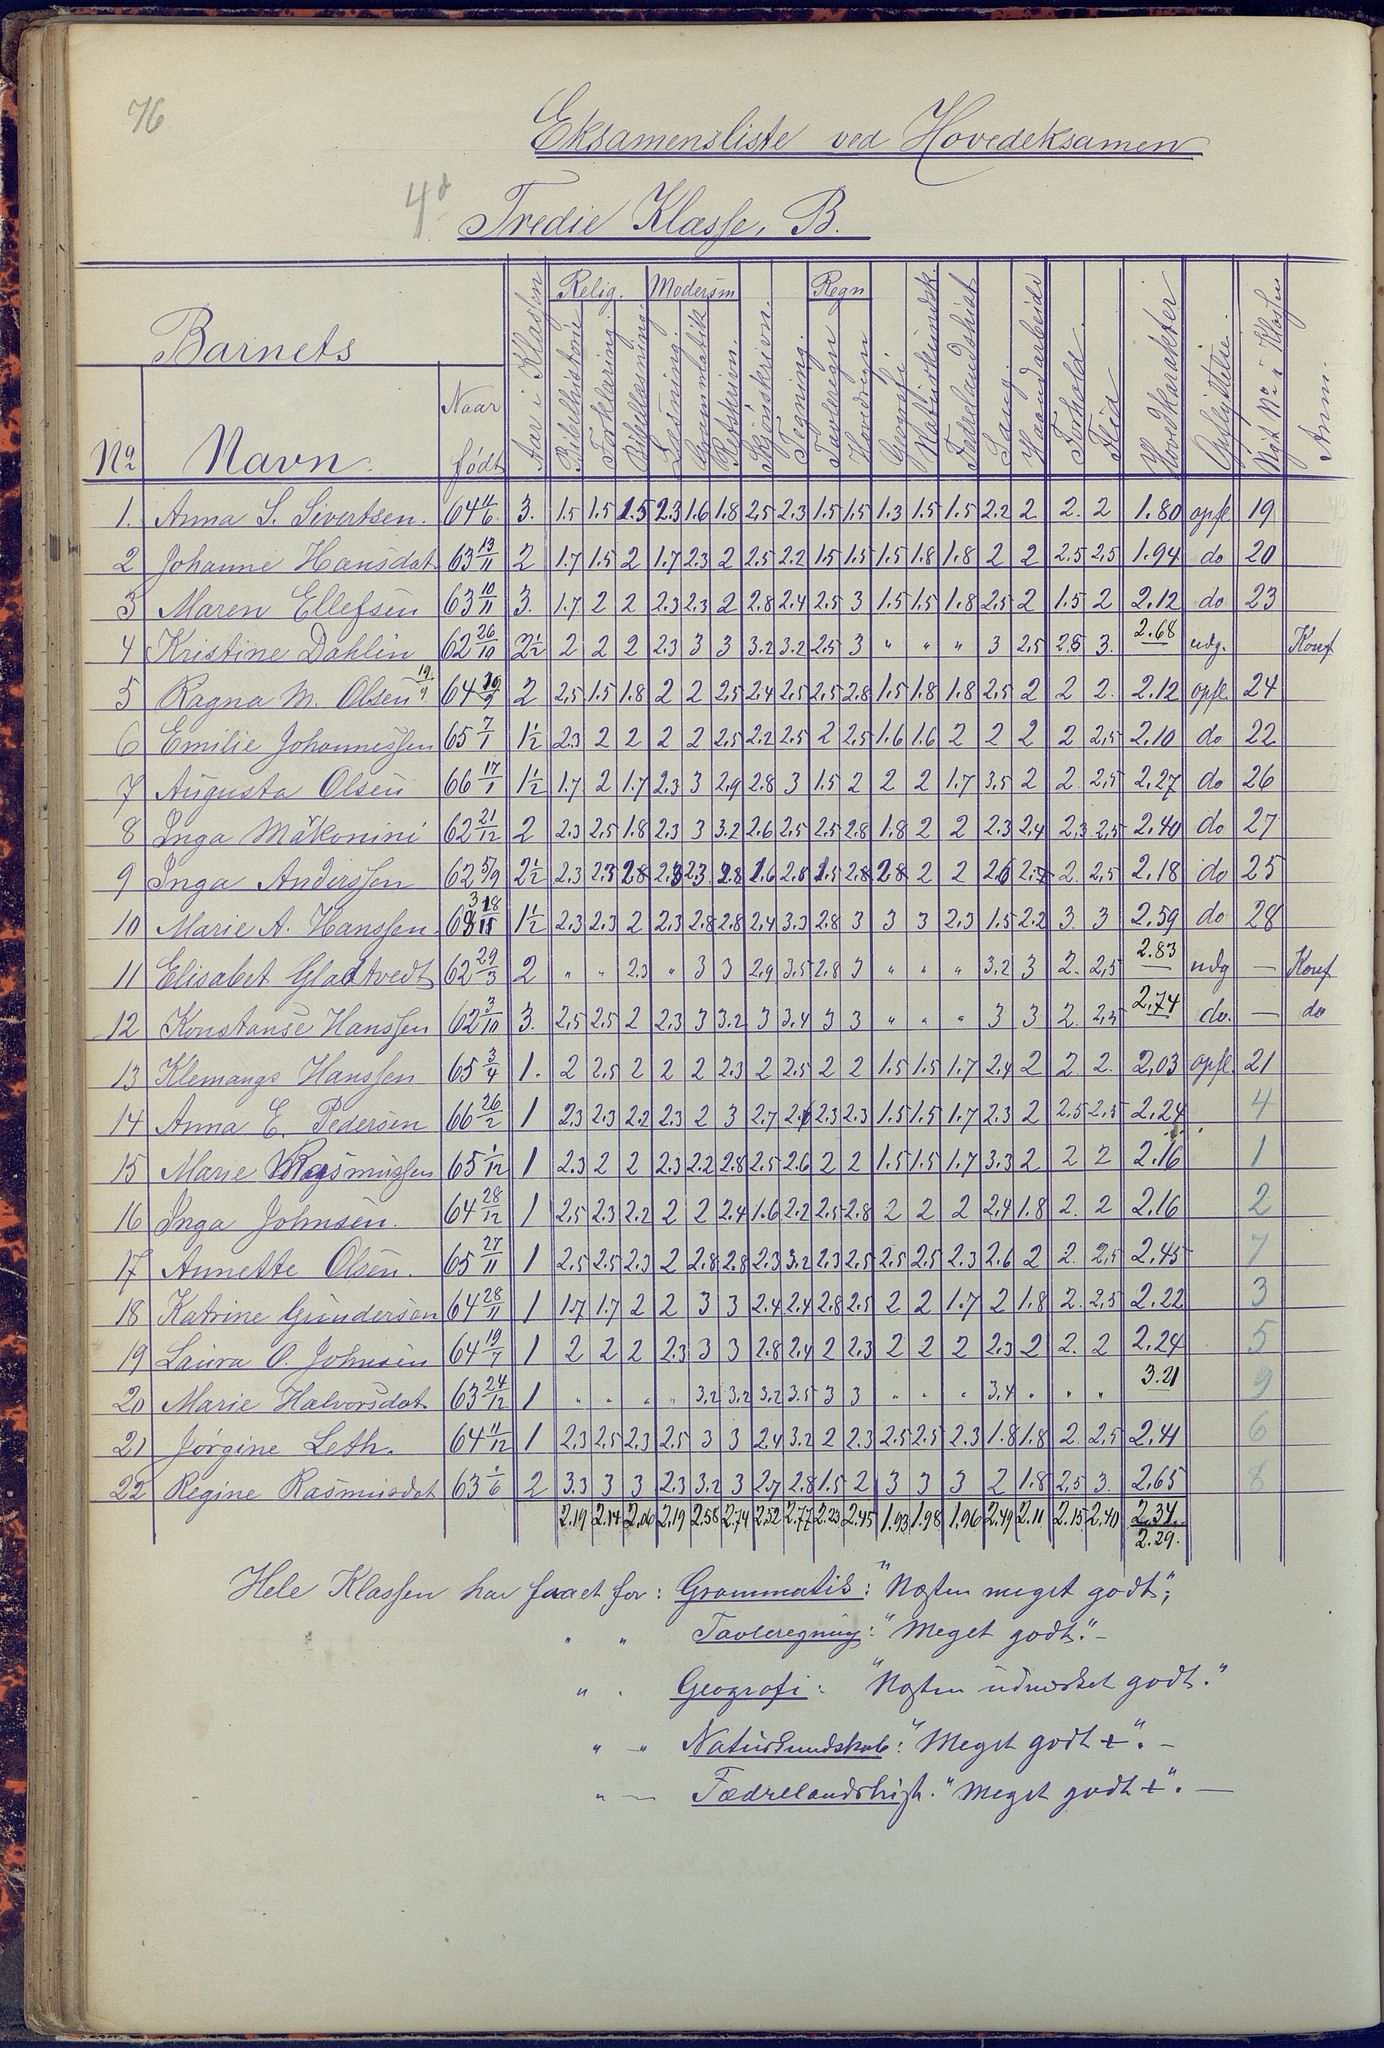 76
Eksamensliste ved Hovedeksamen
4d
Tredie Klasse, B.
Barnets
No Navn. Naar født Aar i Klassen Relig. Bibelhistorie Forklaring. Bibellæsning. Modersm Læsning Grammatik Retskrivn. Skjönskrivn. Tegning. Regn Tavleregn Hovdregn Geografi Naturkundsk. Fædrelandshist Sang. Haandarbeide Forhold. Flid Hovedkarakter Opflyttelse. Nyt No i Klassen Anm.
1. Anna S. Sivertsen. 64 11/6 3. 1.5 1.5 1.5 2.3 1.6 1.8 2.5 2.3 1.5 1.5 1.3 1.5 1.5 2.2 2 2. 2 1.80 opfl 19
2 Johanne Hansdat 63 13/11 2 1.7 1.5 2 1.7 2.3 2 2.5 2.2 1.5 1.5 1.5 1.8 1.8 2 2 2.5 2.5 1.94 do 20
3 Maren Ellefsen 63 10/11 3. 1.7 2 2 2.3 2.3 2 2.8 2.4 2.5 3 1.5 1.5 1.8 2.5 2 1.5 2 2.12 do 23
4 Kristine Dahlin 62 26/10 2½ 2 2 2 2.3 3 3 3.2 3.2 2.5 3 " " " 3 2.5 2.5 3. 2.68 udg. Konf
5 Ragna M. Olsen 19/9 64 19/9 2 2.5 1.5 1.8 2 2 2.5 2.4 2.5 2.5 2.8 1.5 1.8 1.8 2.5 2 2 2. 2.12 opfl. 24
6 Emilie Johannessen 65 7/1 1½ 2.3 2 2 2 2 2.5 2.2 2.5 2 2.5 1.6 1.6 2 2 2 2 2.5 2.10 do 22
7 Augusta Olsen 66 17/1 1½ 1.7 2 1.7 2.3 3 2.9 2.8 3 1.5 2 2 2 1.7 3.5 2 2. 2.5 2.27 do 26
8 Inga Mäkonini 62 21/12 2 2.3 2.5 1.8 2.3 3 3.2 2.6 2.5 2.5 2.8 1.8 2 2 2.3 2.4 2.3 2.5 2.40 do 27
9 Inga Anderssen 62 5/9 2½ 2.3 2.3 2.8 2.3 2.3 2.8 1.6 2.8 1.5 2.8 2.8 2 2 2.6 2.7 2. 2.5 2.18 do 25
10 Marie A. Hanssen 63 18/11 1½ 2.3 2.3 2 2.3 2.8 2.8 2.4 3.3 2.8 3 3 3 2.3 1.5 2.2 3. 3 2.59 do 28
11 Elisabet Gladtvedt 62 29/3 2 " " 2.3 " 3 3 2.9 3.5 2.8 3 " " " 3.2 3 2. 2.5 2.83 udg — Konf
12 Konstanse Hanssen 62 3/10 3. 2.5 2.5 2 2.3 3 3.2 3 3.4 3 3 " " " 3 3 2. 2.5 2.74 do. — do
13 Klemangs Hanssen 65 3/4 1. 2 2.5 2 2 2 2.3 2 2.5 2 2 1.5 1.5 1.7 2.4 2 2 2. 2.03 opfl. 21
14 Anna E. Pedersen 66 26/2 1 2.3 2.3 2.2 2.3 2 3 2.7 2.6 2.3 2.3 1.5 1.5 1.7 2.3 2 2.5 2.5 2.24 4
15 Marie Rasmussen 65 1/12 1 2.3 2 2 2.3 2.2 2.8 2.5 2.6 2 2 1.5 1.5 1.7 3.3 2 2 2 2.16 1
16 Inga Johnsen. 64 28/12 1 2.5 2.3 2.2 2 2 2.4 1.6 2.2 2.5 2.8 2 2 2 2.4 1.8 2. 2 2.16 2
17 Annette Olsen. 65 27/11 1 2.5 2.5 2.3 2 2.8 2.8 2.3 3.2 2.3 2.5 2.5 2.5 2.3 2.6 2 2. 2.5 2.45 7
18 Katrine Gundersen 64 28/11 1 1.7 1.7 2 2 3 3 2.4 2.4 2.8 2.5 2 2 1.7 2 1.8 2. 2.5 2.22 3
19 Laura O. Johnsen 64 19/7 1 2 2 2 2.3 3 3 2.8 2.4 2 2.3 2 2 2 2.3 2 2. 2 2.24 5
20 Marie Halvorsdat. 63 24/12 1 " " " " 3.2 3.2 3.2 3.5 3 3 " " " 3.4 " " " 3.21 9
21 Jørgine Leth. 64 11/12 1 2.3 2.5 2.3 2.5 3 3 2.4 3.2 2 2.3 2.5 2.5 2.3 1.8 1.8 2. 2.5 2.41 6
22 Regine Rasmusdat 63 1/6 2 3.3 3 3 2.3 3.2 3 2.7 2.8 1.5 2 3 3 3 2 1.8 2.5 3. 2.65 8
2.19 2.14 2.06 2.19 2.58 2.74 2.52 2.77 2.23 2.45 1.93 1.98 1.96 2.49 2.11 2.15 2.40 2.34.
2.29.
Hele Klassen har faaet for: Grammatik: "Næsten meget godt";
" " Tavleregning: "Meget godt." –
" " Geografi: "Næsten udmærket godt."
" – " Naturkundskab: "Meget godt +". –
" — Fædrelandshist. "Meget godt +". —